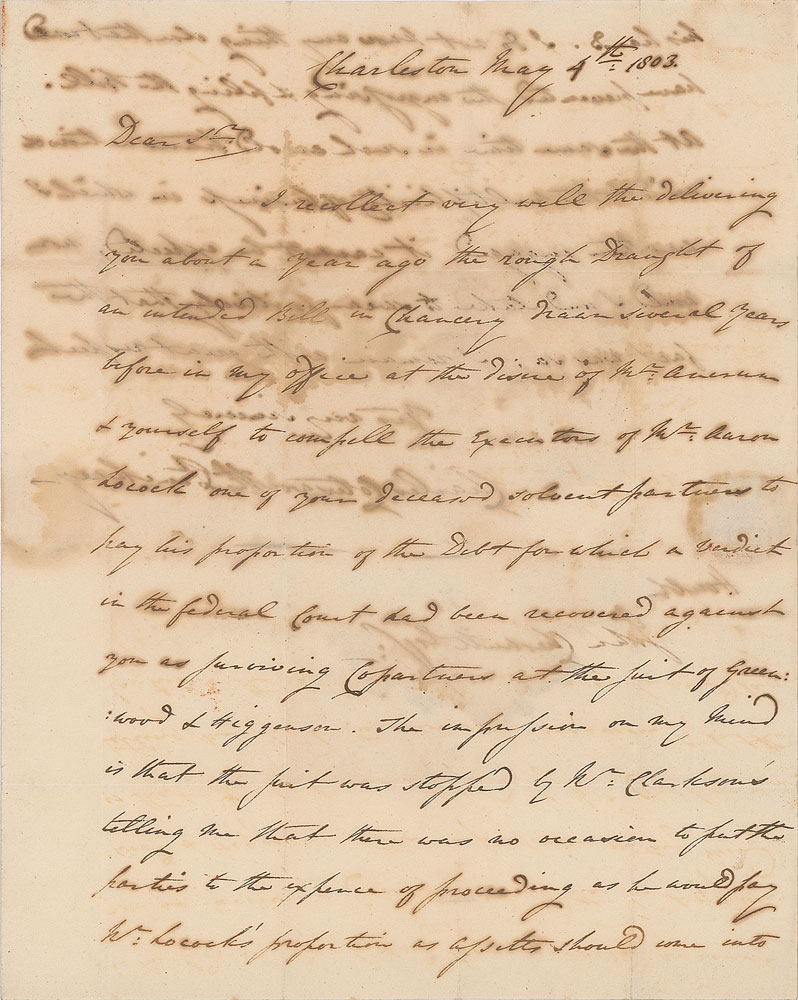 Charleston May 4th: 1803.
Dear Sir
I recollect very well the delivering
you about a year ago the rough Draught of
an intended Bill in Chancery drawn several years
before in my office at the desire of Mr:
& yourself to compell the Executors of Mr: Aaron
Locock one of your deceased solvent partners to
pay his proportion of the Debt for which a verdict
in the federal Court had been recovered against
you as surviving Copartners at the suit of Green:
:wood & Higgenson. The impression on my Mind
is that the suit was stopped by Mr: Clarkson's
telling me that there was no occasion to put the
parties to the expence of proceeding as he would pay
Mr: Locock's proportion as assetts should come into